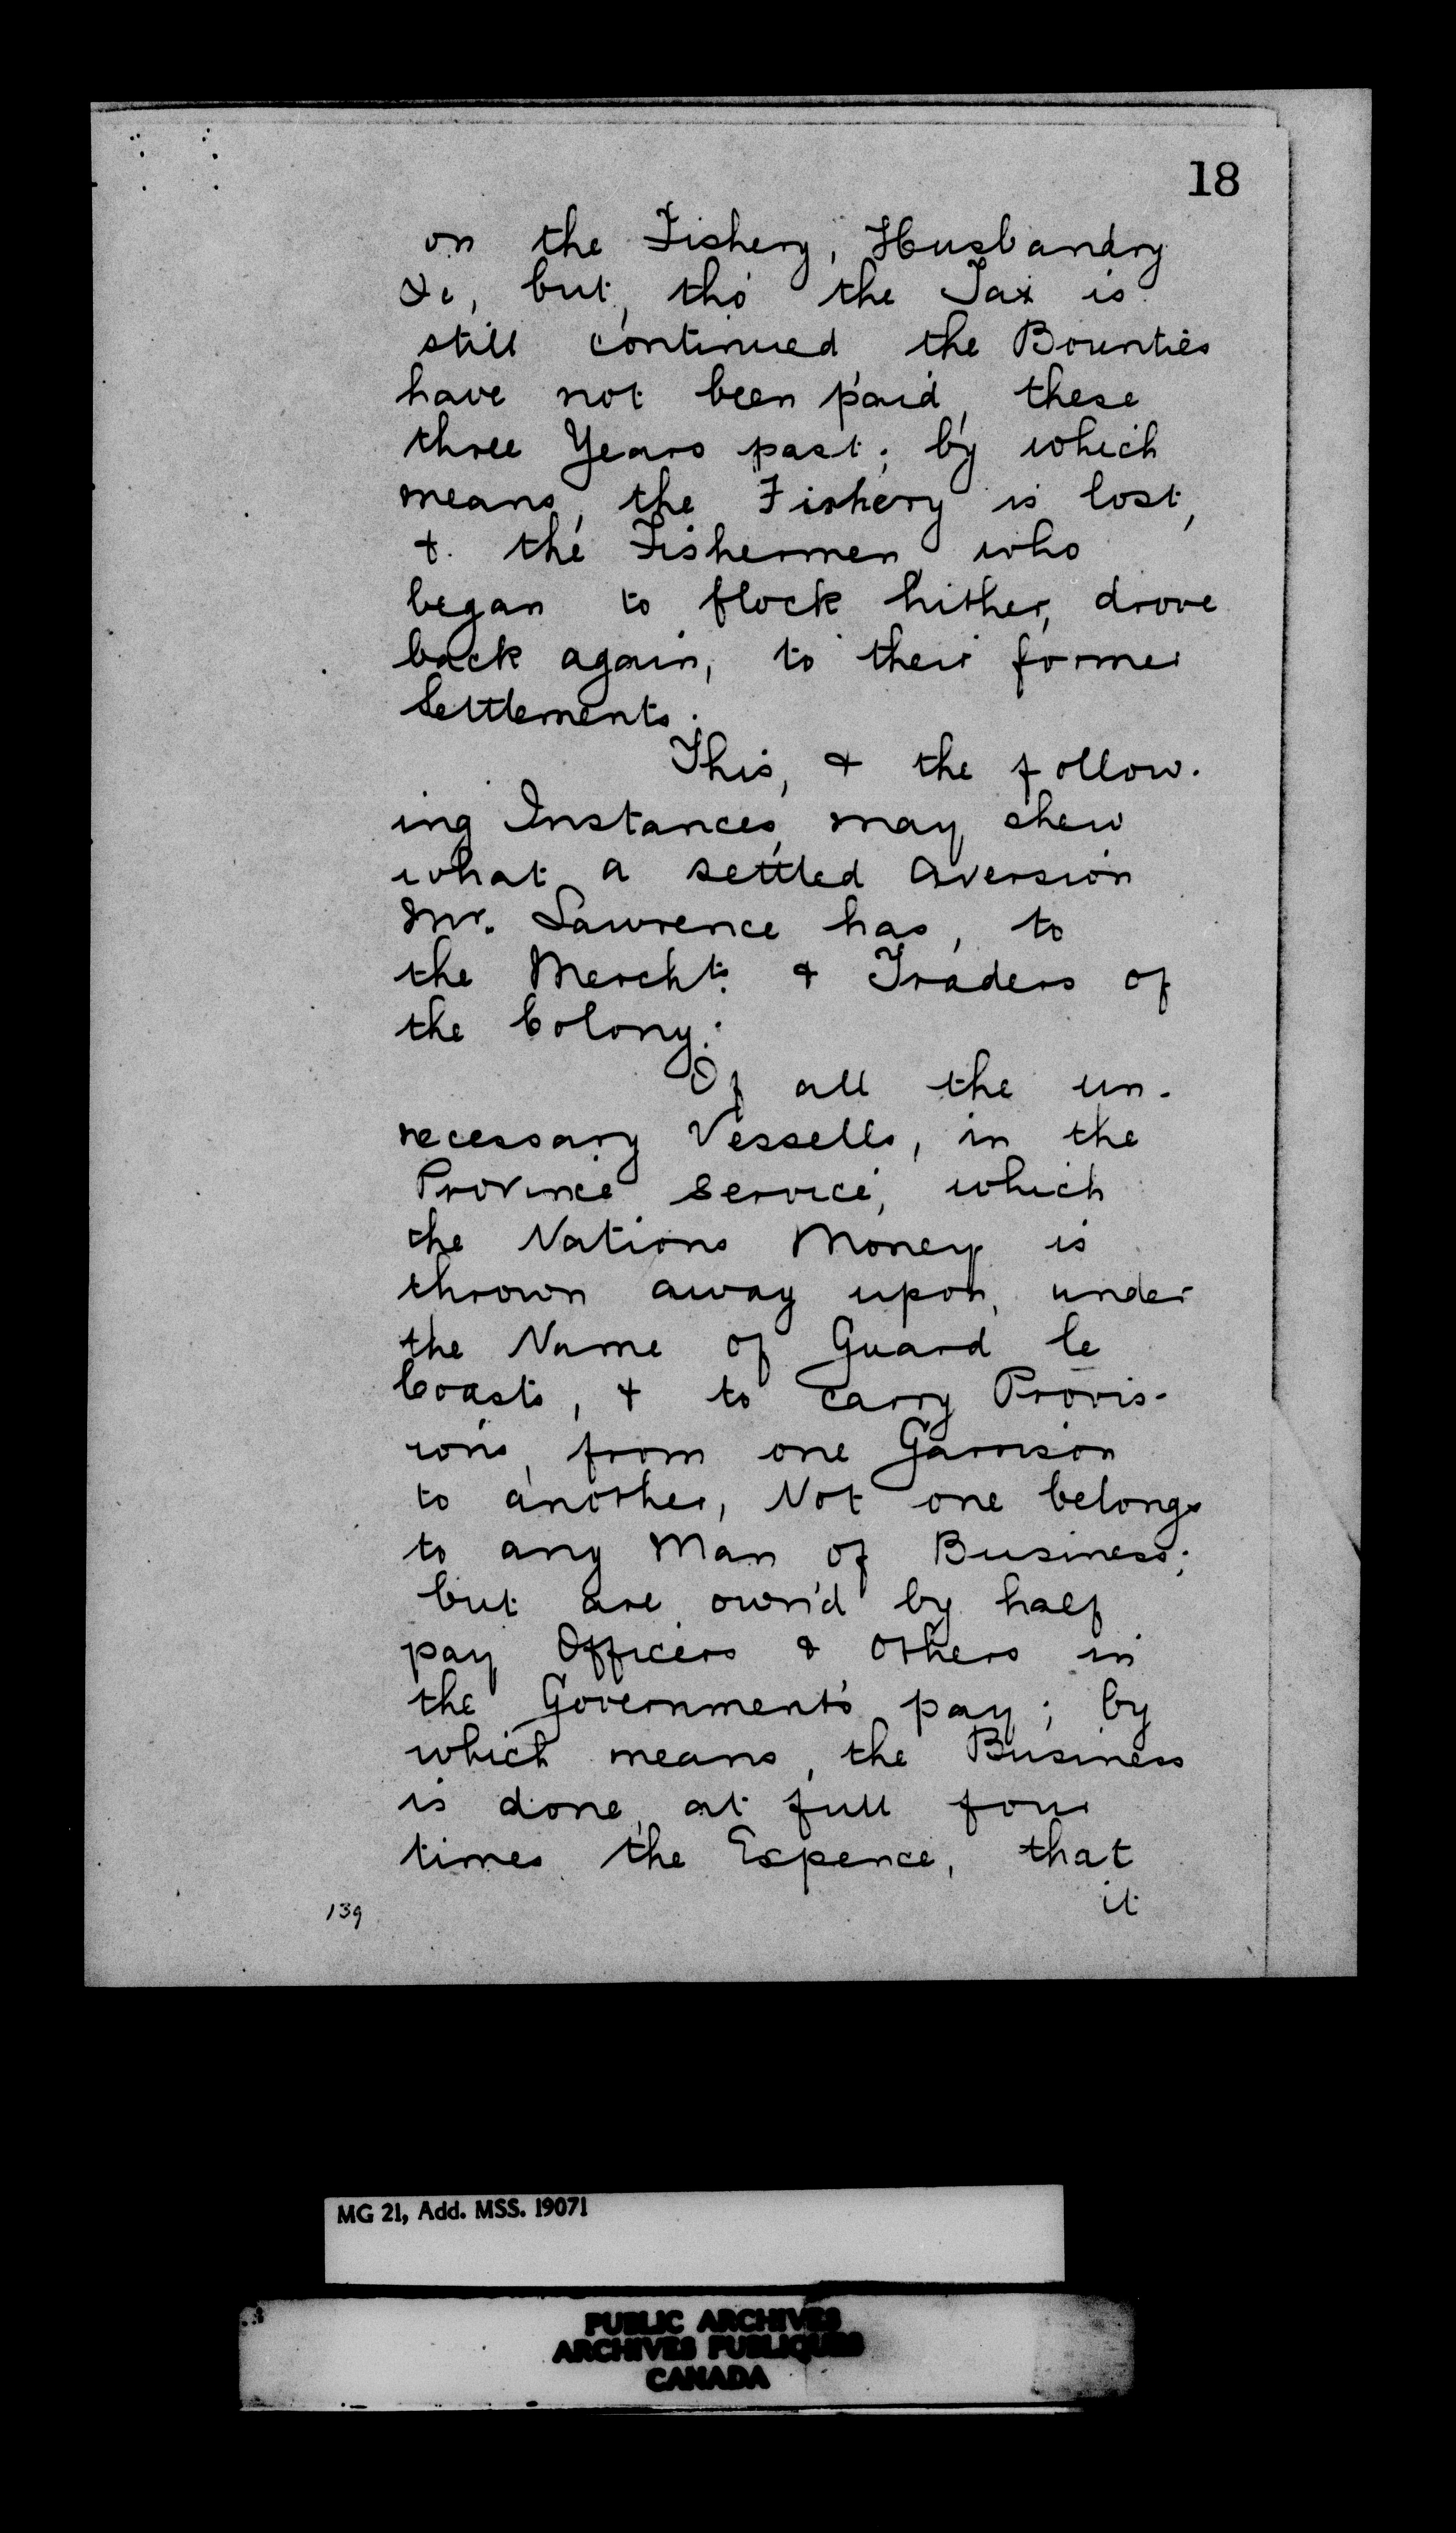 18
on the Fishery, Husbandry
&c, but, tho' the Tax is
still continued the Bounties
have not been paid, these
three Years past; by which
means, the Fishery is lost,
& the Fishermen who
began to flock hither, drove
back again, to their former
Settlements.
This, & the follow-
ing Instances, may shew
what a settled Aversion
Mr. Lawrence has, to
the Mercht.s & Traders of
the Colony:
Of all the un-
necessary Vessells, in the
Province Service, which
the Nations Money is
thrown away upon, under
the Name of Guard le
Coasts, & to carry Provis-
ions, from one Garrison
to another, Not one belongs
to any Man of Business;
but are own'd by half
pay Officers & Others in
the Government's pay; by
which means, the Business
is done, at full four
times the Expence, that
it
139
MG 21, Add. MSS. 19071
PUBLIC ARCHIVES
ARCHIVES PUBLIQUES
CANADA